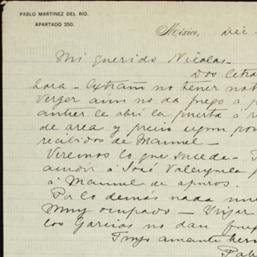 PABLO MARTINEZ DEL RIO.
APARTADO 250.
México, Dic.
Mi querido Nicolas
Dos letra
hora - Extraño no tener not
Verger aun no da fuego a p
antier le abri la puerta á r
de area y precio
recibidos de Manuel -
Veremos lo que sucede -
amor á José Valenzuela
á Manuel de apuros.
Por lo demás nada
Muy ocupado -
los Garcias no dan fueg
Tuyo amante herm
Pab